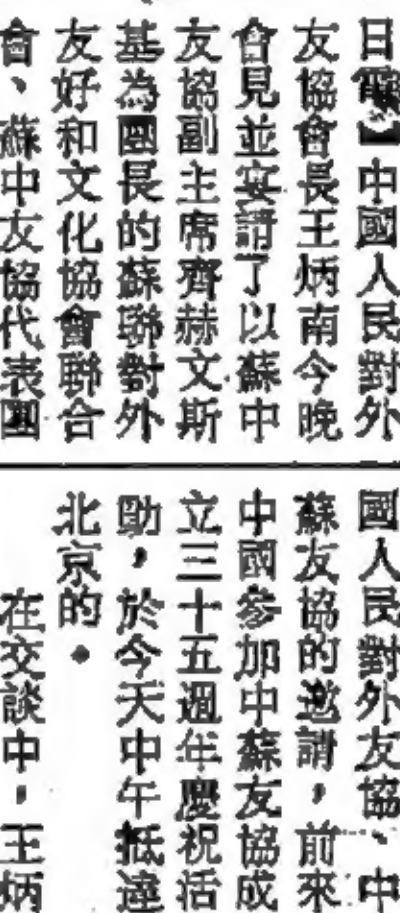 日電】中國人民對外
友協會長王炳南今晚
會見並宴請了以蘇中
友協副主席齊赫文斯
基為團長的蘇聯對外
友好和文化協會聯合
會、蘇中友協代表團
國人民對外友協、中
蘇友協的邀請，前來
中國參加中蘇友協成
立三十五週年慶祝活
動，於今天中午抵達
北京的。
在交談中，王炳